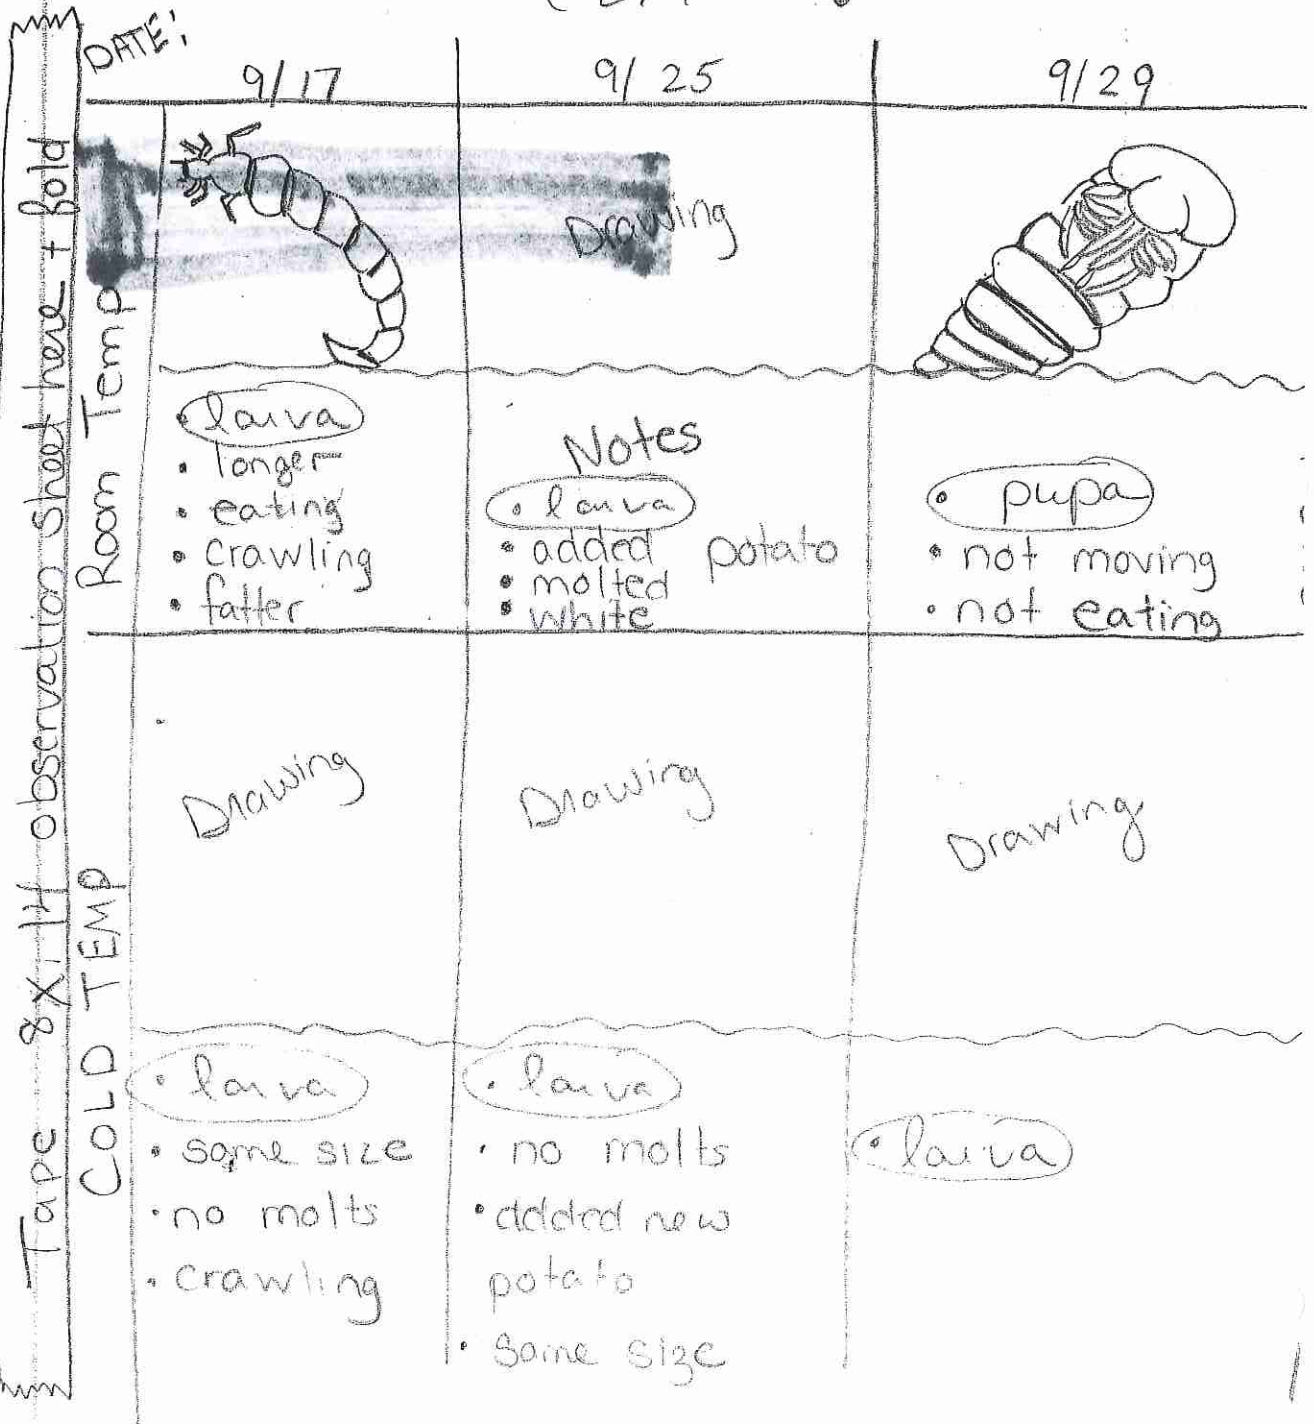 DATE:
9/17
9/25
9/29
Tape 8X14 observation sheet here + fold
Room Temp
Drawing
• larva
• longer
• eating
• crawling
• fatter
Notes
• larva
• added potato
• molted
• white
• pupa
• not moving
• not eating
COLD TEMP
Drawing
Drawing
Drawing
• larva
• same size
• no molts
• crawling
• larva
• no molts
• added new
potato
• same size
• larva